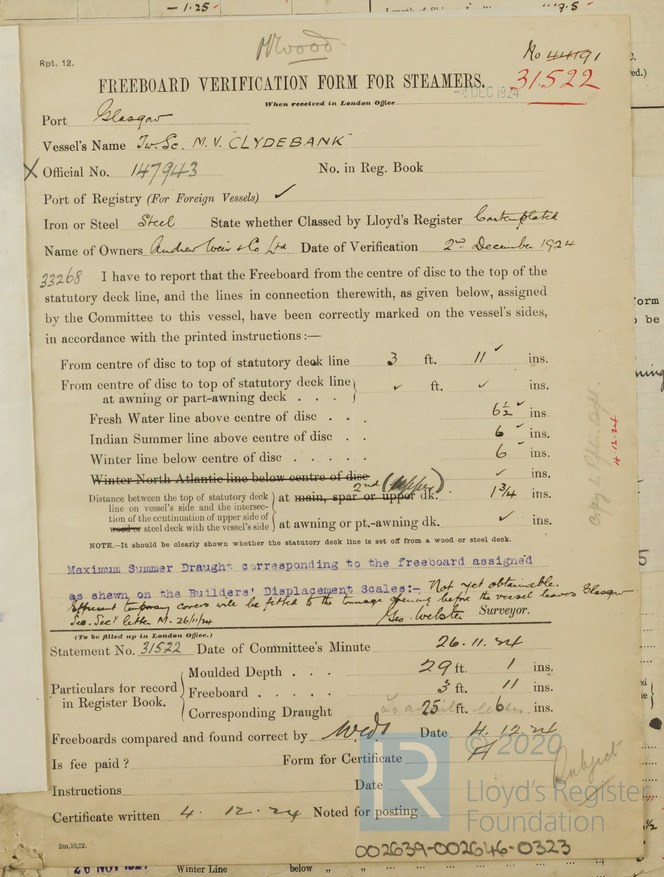 - 1.25
9.5
Rpt. 12.
Wood
No 44191
FREEBOARD VERIFICATION FORM FOR STEAMERS.
31522
DEC 1924
When received in London Office
Port Glasgow
Vessel's Name Tw. Sc. M.V. "CLYDEBANK"
X Official No. 147943 No. in Reg. Book
Port of Registry (For Foreign Vessels) ✓
Iron or Steel Steel State whether Classed by Lloyd's Register Contemplated
Name of Owners Andrew Weir & Co Ltd Date of Verification 2nd December 1924
33268 I have to report that the Freeboard from the centre of disc to the top of the
statutory deck line, and the lines in connection therewith, as given below, assigned
by the Committee to this vessel, have been correctly marked on the vessel's sides,
in accordance with the printed instructions:—
From centre of disc to top of statutory deck line 3 ft. 11 ✓ ins.
From centre of disc to top of statutory deck line
at awning or part-awning deck . . . ✓ ft. ✓ ins.
Fresh Water line above centre of disc . . . 6½ ✓ ins.
Indian Summer line above centre of disc . . 6 ✓ ins.
Winter line below centre of disc . . . . . 6 ✓ ins.
Winter North Atlantic line below centre of disc ✓ ins.
2nd (upper)
Distance between the top of statutory deck
line on vessel's side and the intersec-
tion of the continuation of upper side of
wood or steel deck with the vessel's side
at main, spar or upper dk. 1¾ ins.
at awning or pt.-awning dk. ✓ ins.
Copy to Ptn. Agt. 4.12.24
NOTE.—It should be clearly shown whether the statutory deck line is set off from a wood or steel deck.
Maximum Summer Draught corresponding to the freeboard assigned
as shewn on the Builders' Displacement Scales:- Not yet obtainable.
Efficient temporary covers will be fitted to the tonnage opening before the vessel leaves Glasgow
See Sec's letter M. 26/11/24 Geo. Webster Surveyor.
(To be filled up in London Office.)
Statement No. 31522 Date of Committee's Minute 26.11.24
Particulars for record
in Register Book.
Moulded Depth . . . 29 ft. 1 ins.
Freeboard . . . . . 3 ft. 11 ins.
Corresponding Draught 25 ft. 6 ins.
Freeboards compared and found correct by Date 4.12.24
Is fee paid? Form for Certificate A
Instructions Date
Subject
Certificate written 4.12.24 Noted for posting
© 2020
Lloyd's Register
Foundation
2m,10,22.
002639-002646-0323
26 NOV 192
Winter Line below